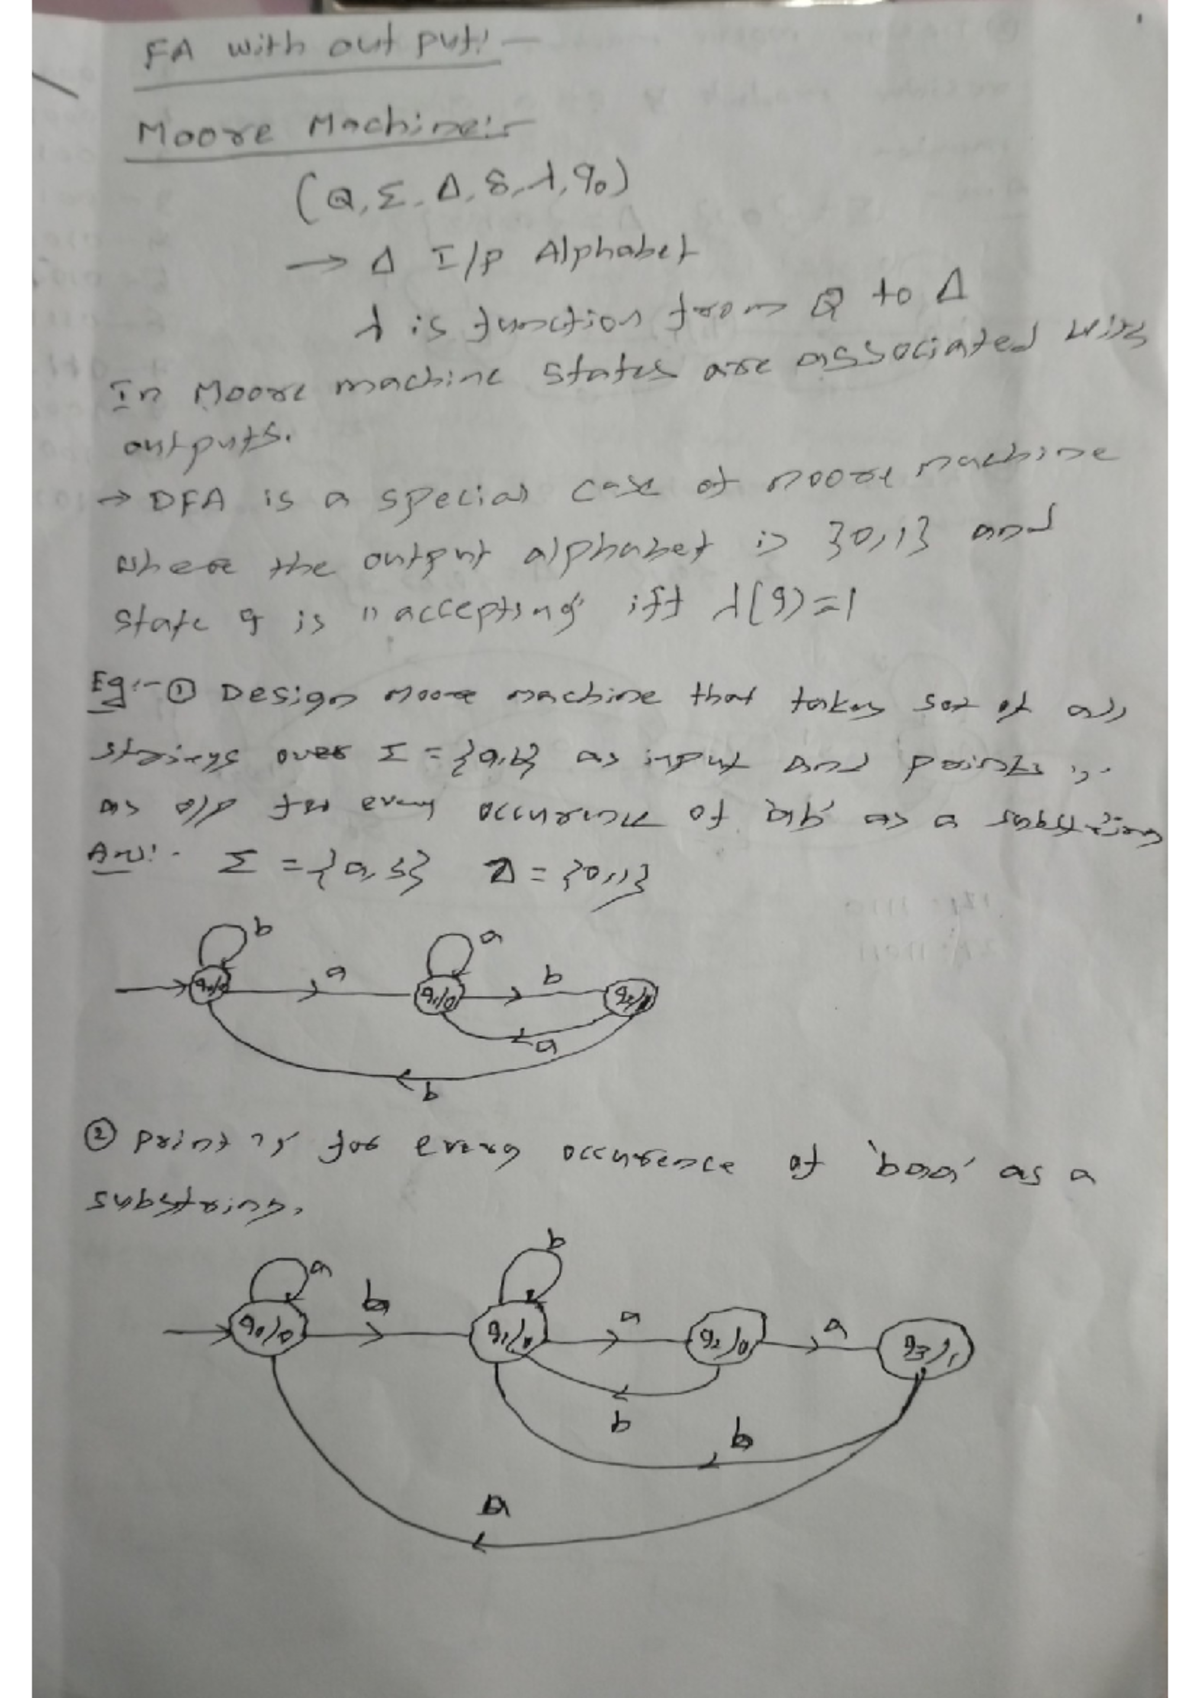 FA with output:-
Moore Machine:-
(Q, Σ, Δ, δ, λ, q0)
→ Δ I/p Alphabet
λ is function from Q to Δ
In Moore machine states are associated with
outputs.
→ DFA is a special case of moore machine
where the output alphabet is {0,1} and
state q is "accepting" iff λ(q)=1
Eg:-① Design moore machine that takes set of all
strings over Σ = {a,b} as input and prints '1'
as o/p for every occurence of 'ab' as a substring
Ans:- Σ = {a,b} Δ = {0,1}
b a
q0/0 a q1/0 b q2/1
a
b
② print '1' for every occurence of 'baa' as a
substring.
a b
q0/0 b q1/0 a q2/0 a q3/1
b
b
a